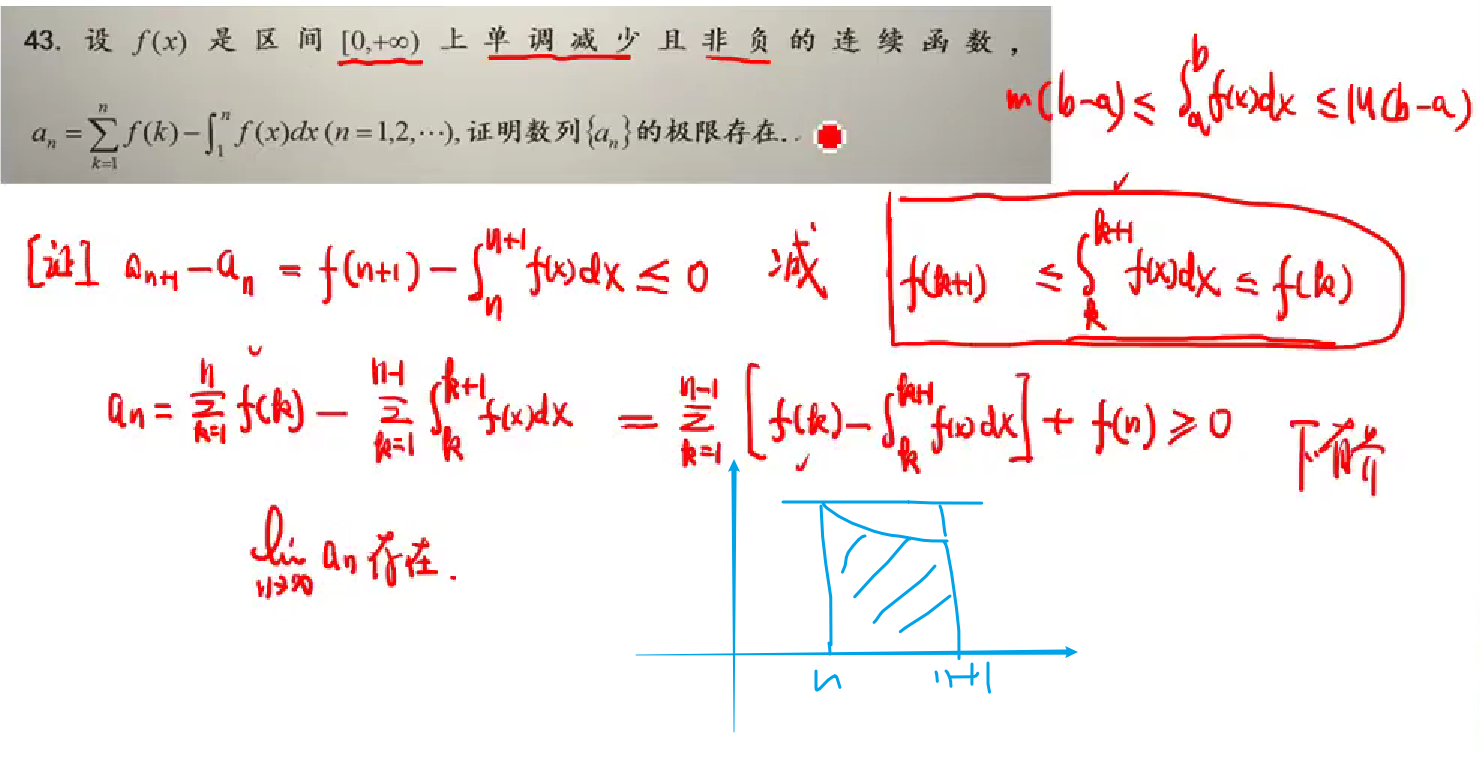 43. 设 f(x) 是区间 [0,+∞) 上单调减少且非负的连续函数，
a_n = \sum_{k=1}^{n} f(k) - \int_1^n f(x)dx (n=1,2,⋯), 证明数列{a_n}的极限存在..
m(b-a) ≤ \int_a^b f(x)dx ≤ M(b-a)
[证] a_{n+1} - a_n = f(n+1) - \int_n^{n+1} f(x)dx ≤ 0 减
f(k+1) ≤ \int_k^{k+1} f(x)dx ≤ f(k)
a_n = \sum_{k=1}^{n} f(k) - \sum_{k=1}^{n-1} \int_k^{k+1} f(x)dx = \sum_{k=1}^{n-1} [f(k) - \int_k^{k+1} f(x)dx] + f(n) ≥ 0 下有界
\lim_{n→∞} a_n 存在.
n n+1